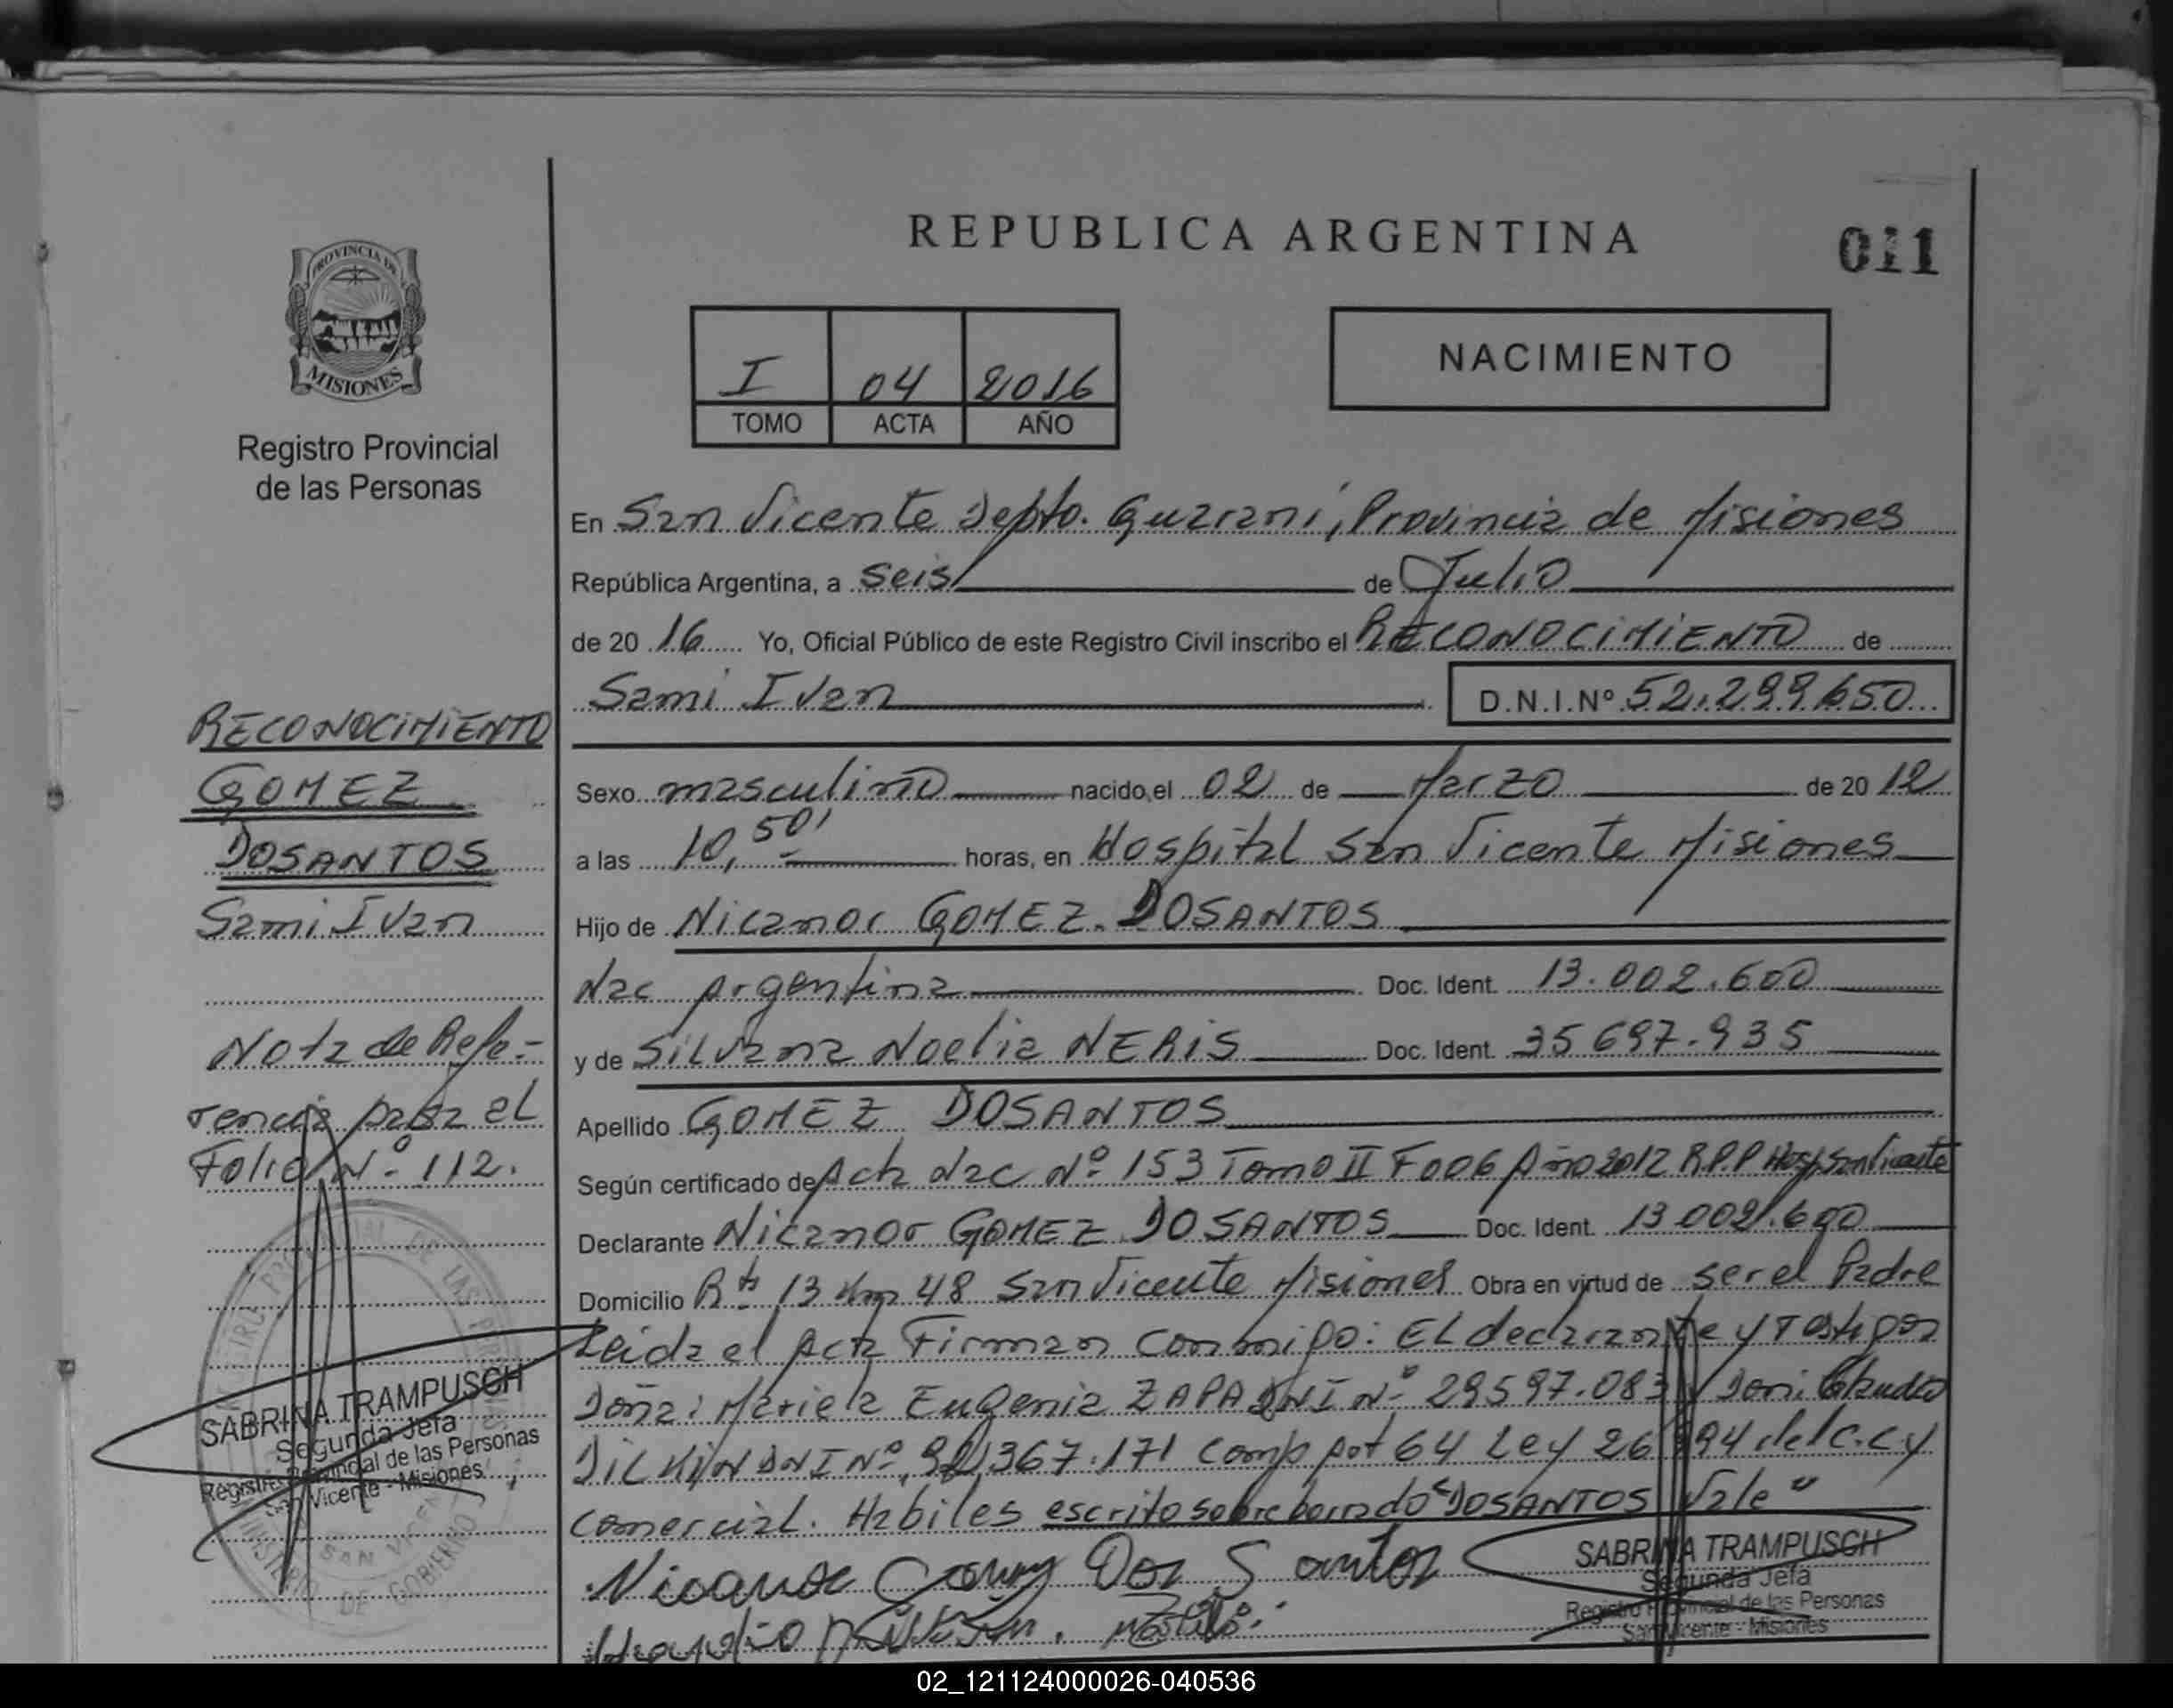 REPUBLICA ARGENTINA
011
PROVINCIA DE
MISIONES
Registro Provincial
de las Personas
I 04 2016
TOMO ACTA AÑO
NACIMIENTO
En San Vicente Depto. Guarani, Provincia de Misiones
República Argentina, a seis de Julio
de 20 16 Yo, Oficial Público de este Registro Civil inscribo el RECONOCIMIENTO de
Sami Ivan D.N.I.Nº 52.299.650
Sexo masculino nacido el 02 de Marzo de 20 12
a las 10,50' horas, en Hospital San Vicente Misiones
Hijo de Nicanor GOMEZ DOSANTOS
Nac Argentina Doc. Ident. 13.002.600
y de Silvana Noelia NERIS Doc. Ident. 35697.935
Apellido GOMEZ DOSANTOS
Según certificado de Acta Nac Nº 153 Tomo II F006 Año 2012 R.P.P Hosp San Vicente
Declarante Nicanor GOMEZ DOSANTOS Doc. Ident. 13002.600
Domicilio Rta 13 Km 48 San Vicente Misiones Obra en virtud de ser el Padre
Leida el Acta Firman conmigo: El declarante y Testigos
Doña: Mariela Eugenia ZAPA DNI Nº 29597.083 y Don: Claudio
DNI Nº 367.171 Comp Art 64 Ley 26 994 del C.C y
comercial. Habiles escrito sobre borrado "DOSANTOS Vale"
RECONOCIMIENTO
GOMEZ
DOSANTOS
Sami Ivan
Nota de Refe-
rencia pasa al
Folio Nº 112.
SABRINA TRAMPUSCH
Segunda Jefa
Registro Provincial de las Personas
San Vicente - Misiones
Gomez Dos Santos
SABRINA TRAMPUSCH
Segunda Jefa
Registro Provincial de las Personas
San Vicente - Misiones
02_121124000026-040536